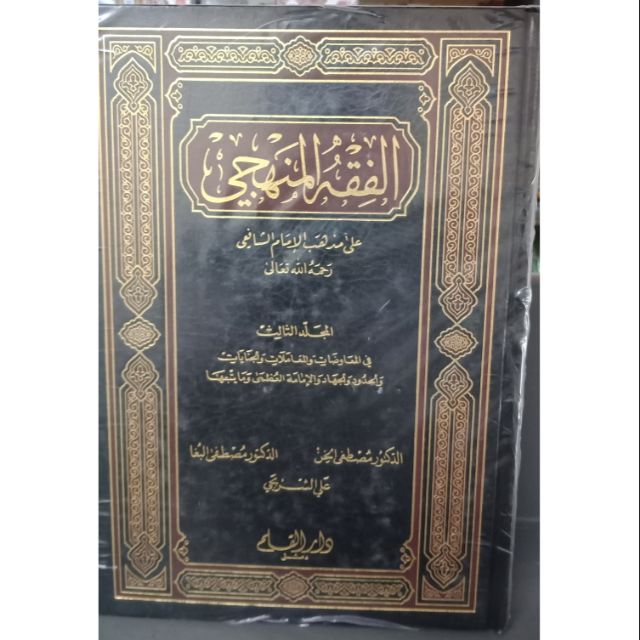 الفِقْهُ المَنْهَجِي
عَلى مَذْهَبِ الإمَامِ الشَّافِعِي
رَحِمَهُ اللهُ تَعَالى
المجَلّد الثّالِث
في المعَاوضَات وَالمعَاملَات وَالجنَايَات
وَالحدُود وَالجهَاد وَالإمَامَة العُظْمَى وَمَا يتْبعهَا
الدّكتور مُصْطفى الخن الدّكتور مُصْطفى البُغا
عَلي الشّرْبَجي
دار القلم
دمشق